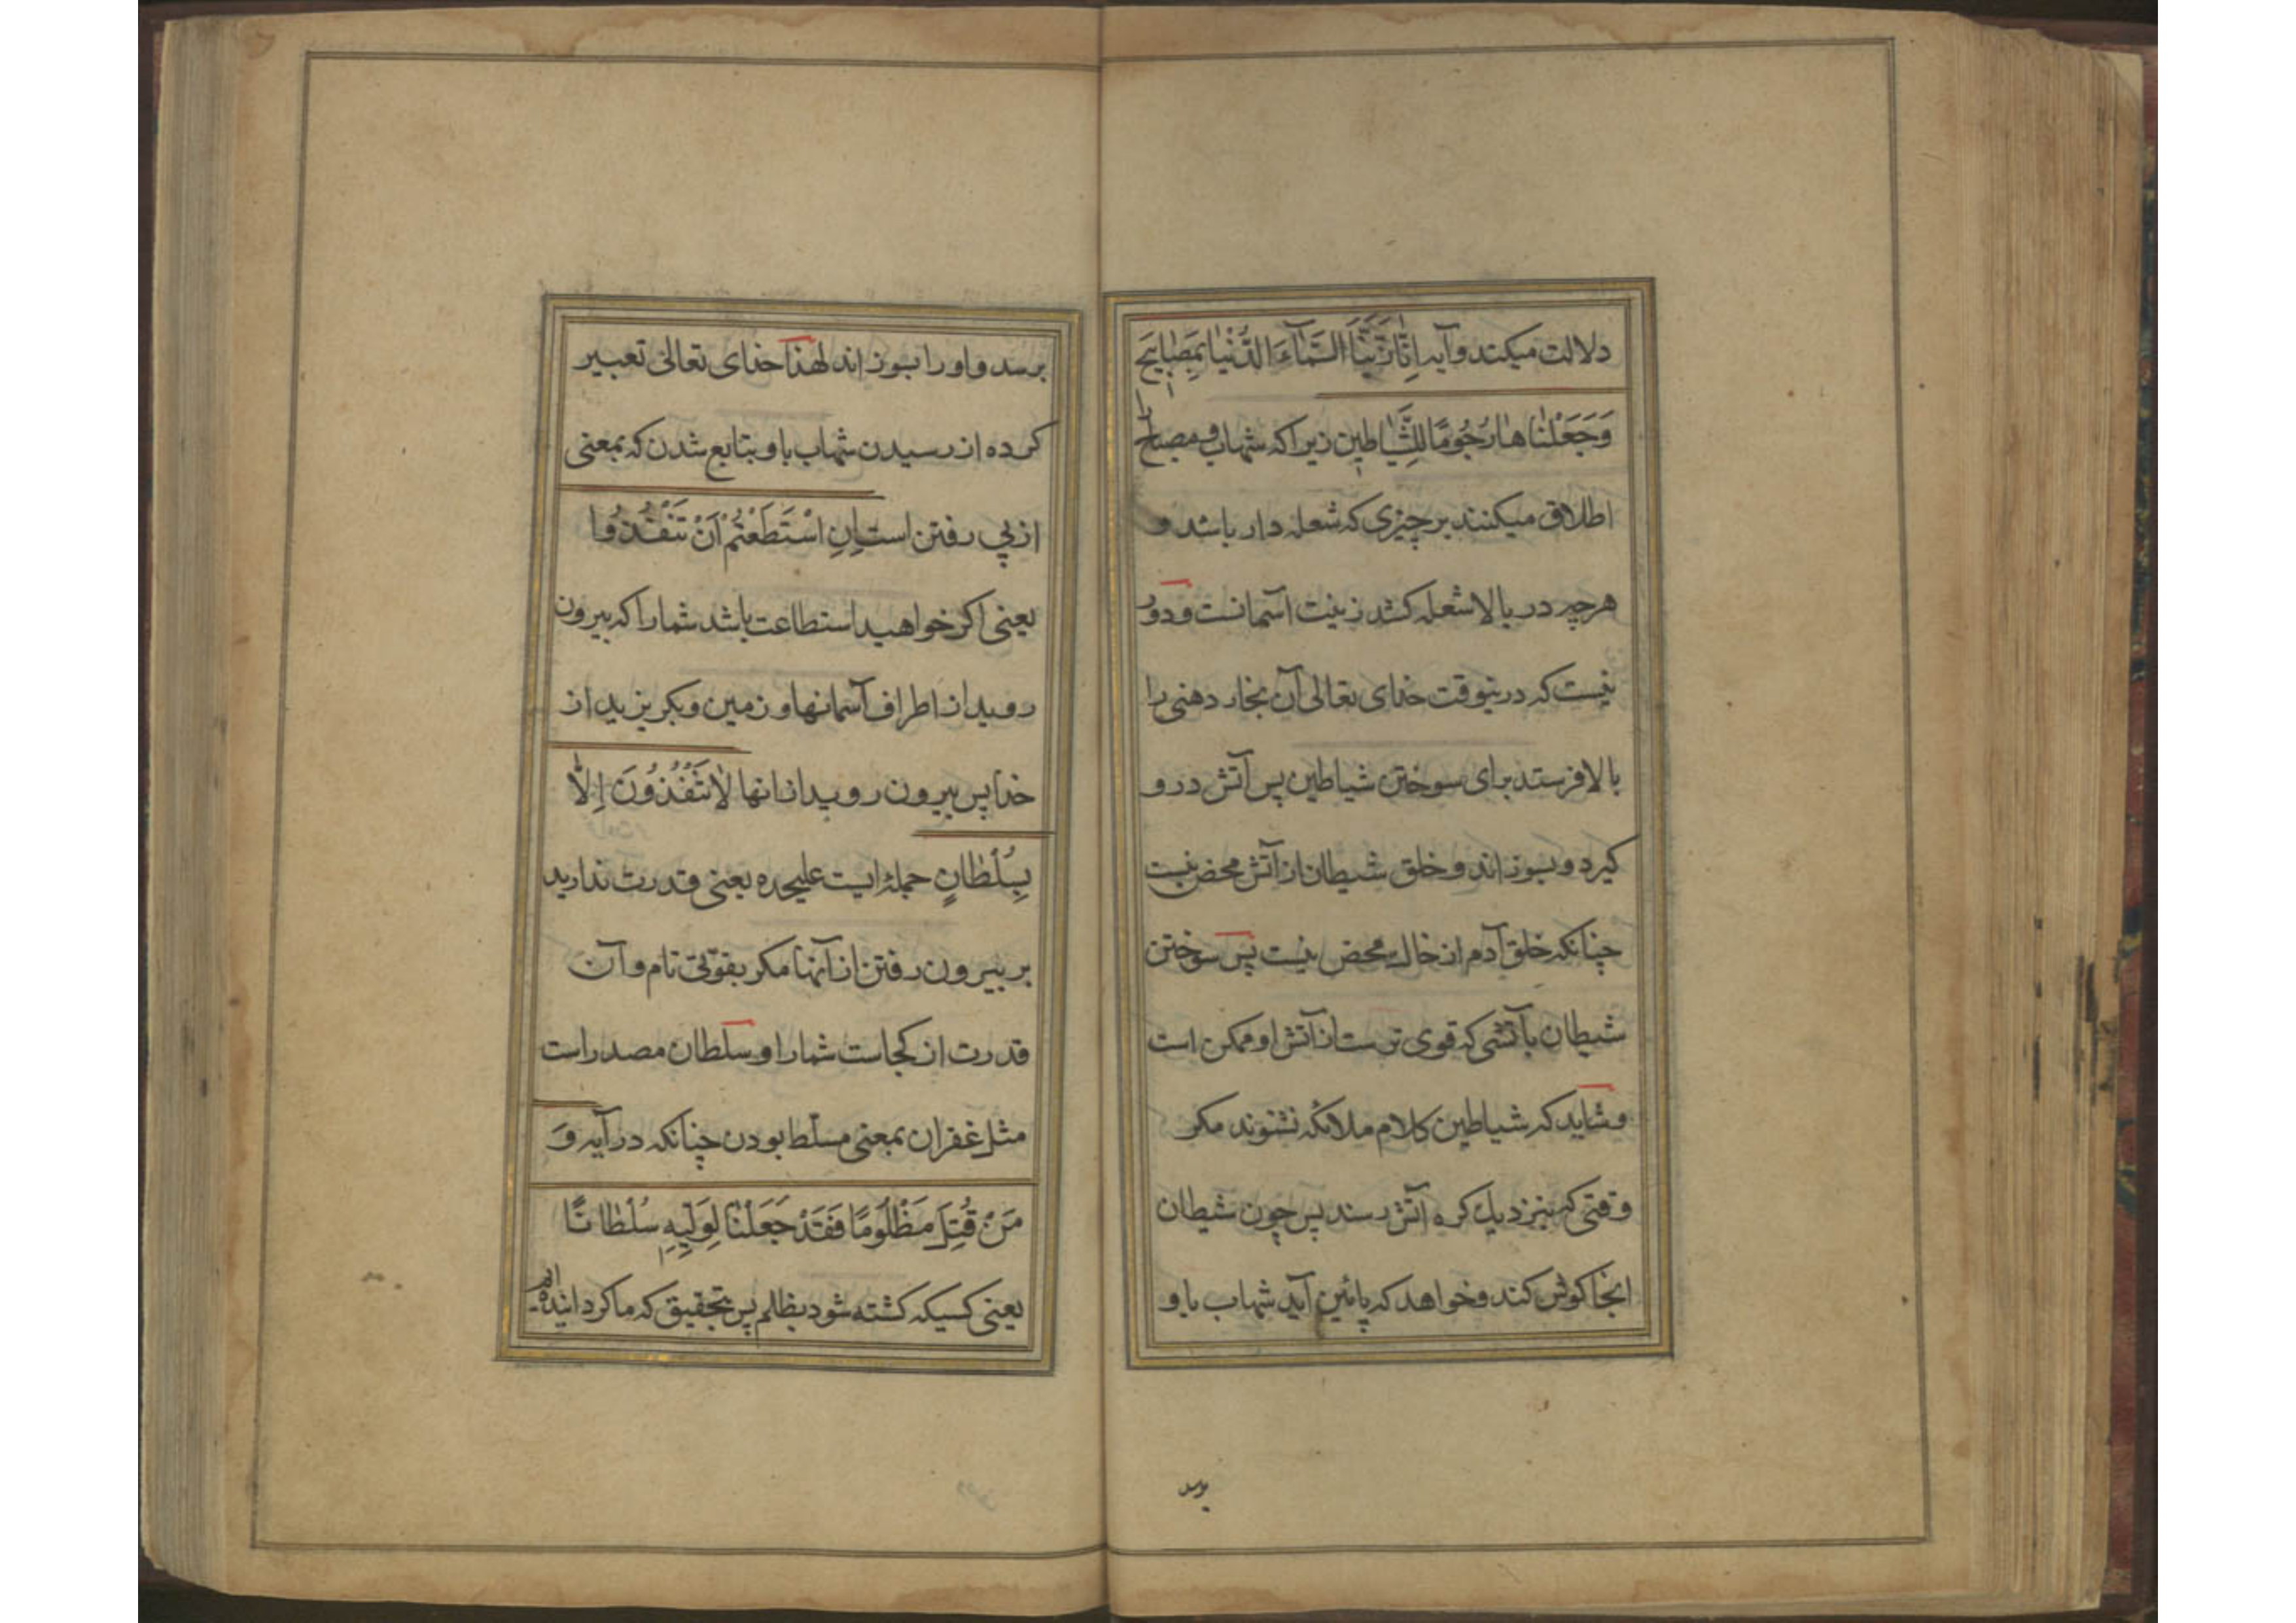 دلالت میکند و آیه اِنّا زَیَّنَّا السَّمٰآءَ الدُّنْیٰا بِمَصٰابِیحَ
وَجَعَلْنٰا هٰا رُجُومًا لِلشَّیٰاطِینِ زیرا که شهاب و مصباح را
اطلاق میکنند بر چیزی که شعله دار باشد و
هرچه در بالا شعله کشد زینت آسمانست و دور
نیست که درینوقت خدای تعالی آن بخار دهنی را
بالا فرستد برای سوختن شیاطین پس آتش درو
کیرد و بسوزاند و خلق شیطان از آتش محض نیست
چنانکه خلق آدم از خاک محض نیست پس سوختن
شیطان بآتشی که قوی ترست از آتش او ممکن است
و شاید که شیاطین کلام ملائکه نشنوند مکر
وقتی که بنزدیک کره آتش رسند پس چون شیطان
انجا کوش کند و خواهد که پائین آید شهاب باو
برسد
برسد و اورا بسوزاند لهذا خدای تعالی تعبیر
کرده از رسیدن شهاب باو بتابع شدن که بمعنی
از پی رفتن است اِنِ اسْتَطَعْتُمْ اَنْ تَنْفُذُوا
یعنی اکر خواهید استطاعت باشد شمارا که بیرون
روید از اطراف آسمانها و زمین و بکریزید از
خدا پس بیرون روید از انها لٰا تَنْفُذُونَ اِلّٰا
بِسُلْطٰانٍ جمله ایست علیحده یعنی قدرت ندارید
بر بیرون رفتن از آنها مکر بقوّتی تام و آن
قدرت از کجاست شمارا و سلطان مصدر است
مثل غفران بمعنی مسلّط بودن چنانکه در آیه وَ
مَنْ قُتِلَ مَظْلُومًا فَقَدْ جَعَلْنٰا لِوَلِیِّهِ سُلْطٰانًا
یعنی کسیکه کشته شود بظلم پس بتحقیق که ما کردانیده ایم